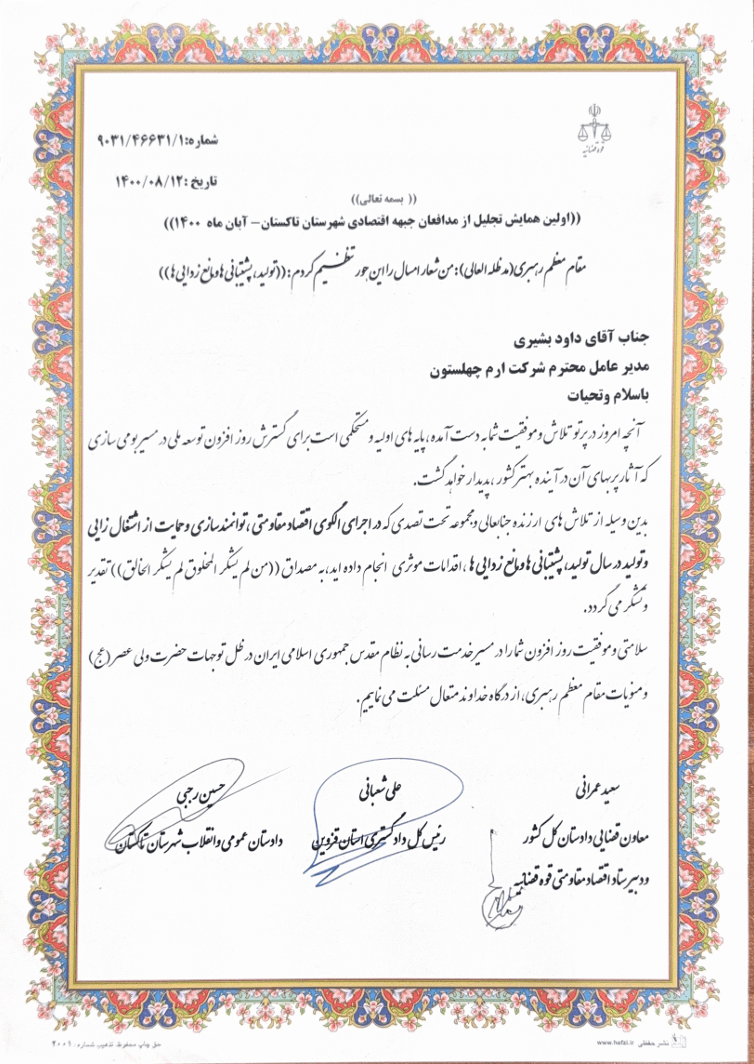 قوه قضائیه
شماره: ۹۰۳۱/۴۶۶۳۱/۱
تاریخ: ۱۴۰۰/۰۸/۱۲
(( بسمه تعالی))
((اولین همایش تجلیل از مدافعان جبهه اقتصادی شهرستان تاکستان- آبان ماه ۱۴۰۰))
مقام معظم رهبری(مدظله العالی): من شعار امسال را این جور تنظیم کردم: ((تولید، پشتیبانی ها و مانع زدایی ها))
جناب آقای داود بشیری
مدیر عامل محترم شرکت ارم چهلستون
باسلام وتحیات
آنچه امروز در پرتو تلاش و موفقیت شما به دست آمده، پایه های اولیه و مستحکمی است برای گسترش روز افزون توسعه ملی در مسیر بومی سازی
که آثار پربهای آن در آینده بهتر کشور، پدیدار خواهد گشت.
بدین وسیله از تلاش های ارزنده جنابعالی و مجموعه تحت تصدی که در اجرای الگوی اقتصاد مقاومتی، توانمندسازی و حمایت از اشتغال زایی
و تولید در سال تولید، پشتیبانی ها و مانع زدایی ها، اقدامات موثری انجام داده اید، به مصداق ((من لم یشکر المخلوق لم یشکر الخالق)) تقدیر
و تشکر می گردد.
سلامتی و موفقیت روز افزون شما را در مسیر خدمت رسانی به نظام مقدس جمهوری اسلامی ایران در ظل توجهات حضرت ولی عصر(عج)
و منویات مقام معظم رهبری، از درگاه خداوند متعال مسئلت می نماییم.
سعید عمرانی
معاون قضایی دادستان کل کشور
و دبیر ستاد اقتصاد مقاومتی قوه قضائیه
علی شعبانی
رئیس کل دادگستری استان قزوین
حسین رجبی
دادستان عمومی و انقلاب شهرستان تاکستان
نشر حفظی www.hefzi.ir
حق چاپ محفوظ. تذهیب شماره: ۲۰۰۹